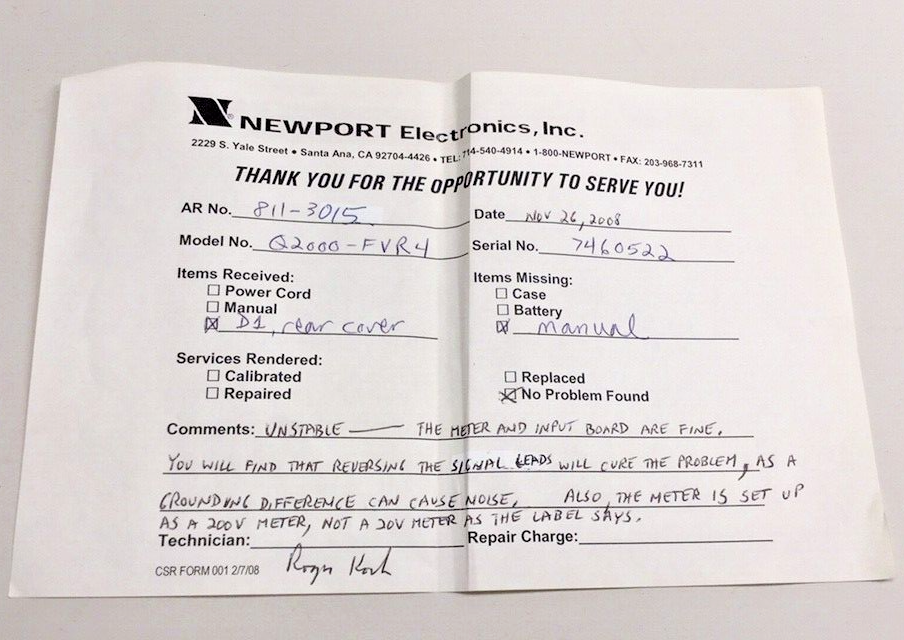 N® NEWPORT Electronics, Inc.
2229 S. Yale Street • Santa Ana, CA 92704-4426 • TEL: 714-540-4914 • 1-800-NEWPORT • FAX: 203-968-7311
THANK YOU FOR THE OPPORTUNITY TO SERVE YOU!
AR No. 811-3015 Date NOV 26, 2008
Model No. Q2000-FVR4 Serial No. 7460522
Items Received: Items Missing:
☐ Power Cord ☐ Case
☐ Manual ☐ Battery
☒ D1, rear cover ☒ manual
Services Rendered:
☐ Calibrated ☐ Replaced
☐ Repaired ☒ No Problem Found
Comments: UNSTABLE —— THE METER AND INPUT BOARD ARE FINE.
YOU WILL FIND THAT REVERSING THE SIGNAL LEADS WILL CURE THE PROBLEM, AS A
GROUNDING DIFFERENCE CAN CAUSE NOISE. ALSO, THE METER IS SET UP
AS A 200V METER, NOT A 20V METER AS THE LABEL SAYS.
Technician: Repair Charge:
CSR FORM 001 2/7/08 Roger Koch